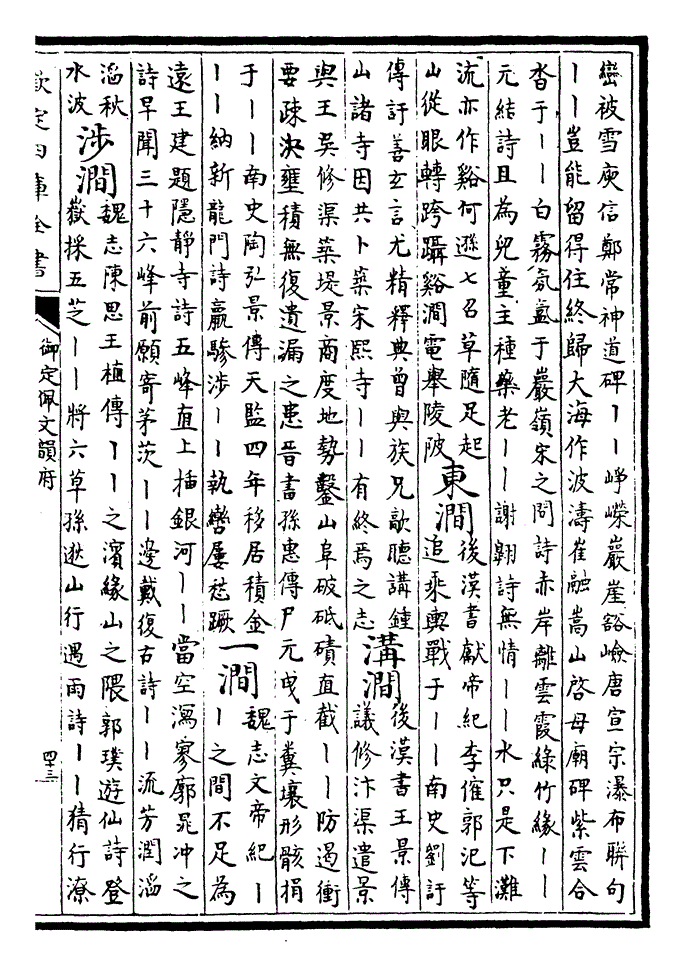 巒被雪庾信鄭常神道碑丨丨崢嶸巖崖豁嶮唐宣宗瀑布聯句
丨丨豈能留得住終歸大海作波濤崔融嵩山啓母廟碑紫雲合
沓于丨丨白霧氛氳于巖嶺宋之問詩赤岸離雲霞綠竹緣丨丨
元結詩且為兒童主種藥老丨丨謝翺詩無情丨丨水只是下灘
流亦作谿何遜七召草隨足起
山從眼轉跨躡谿澗電舉陵陂
東澗
後漢書獻帝紀李傕郭汜等
追乘輿戰于丨丨南史劉訏
傳訏善玄言尤精釋典曾與族兄歊聽講鍾
山諸寺因共卜築宋熙寺丨丨有終焉之志
溝澗
後漢書王景傳
議修汴渠遣景
與王吳修渠築堤景商度地勢鑿山阜破砥磧直截丨丨防遏衝
要疎決壅積無復遺漏之患晉書孫惠傳尸元曵于糞壤形骸捐
于丨丨南史陶弘景傳天監四年移居積金
丨丨納新龍門詩羸驂涉丨丨執轡屢愁蹶
一澗
魏志文帝紀丨
丨之間不足為
遠王建題隱靜寺詩五峰直上插銀河丨丨當空瀉寥廓晁冲之
詩早聞三十六峰前願寄茅茨丨丨邊戴復古詩丨丨流芳潤滔
滔秋
水波
涉澗
魏志陳思王植傳丨丨之濱緣山之隈郭璞遊仙詩登
嶽採五芝丨丨將六草孫逖山行遇雨詩丨丨猜行潦
欽定四庫全書
御定佩文韻府
四十三